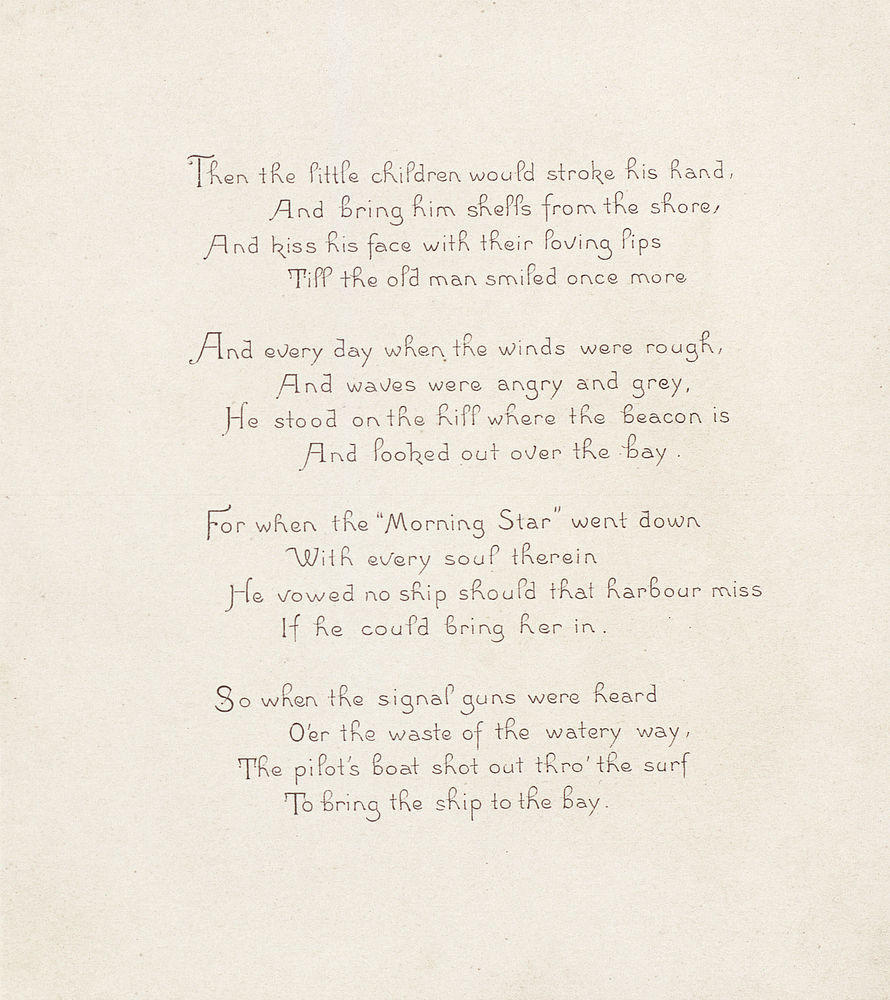 Then the little children would stroke his hand,
And bring him shells from the shore,
And kiss his face with their loving lips
Till the old man smiled once more
And every day when the winds were rough,
And waves were angry and grey,
He stood on the hill where the beacon is
And looked out over the bay.
For when the "Morning Star" went down
With every soul therein
He vowed no ship should that harbour miss
If he could bring her in.
So when the signal guns were heard
O'er the waste of the watery way,
The pilot's boat shot out thro' the surf
To bring the ship to the bay.